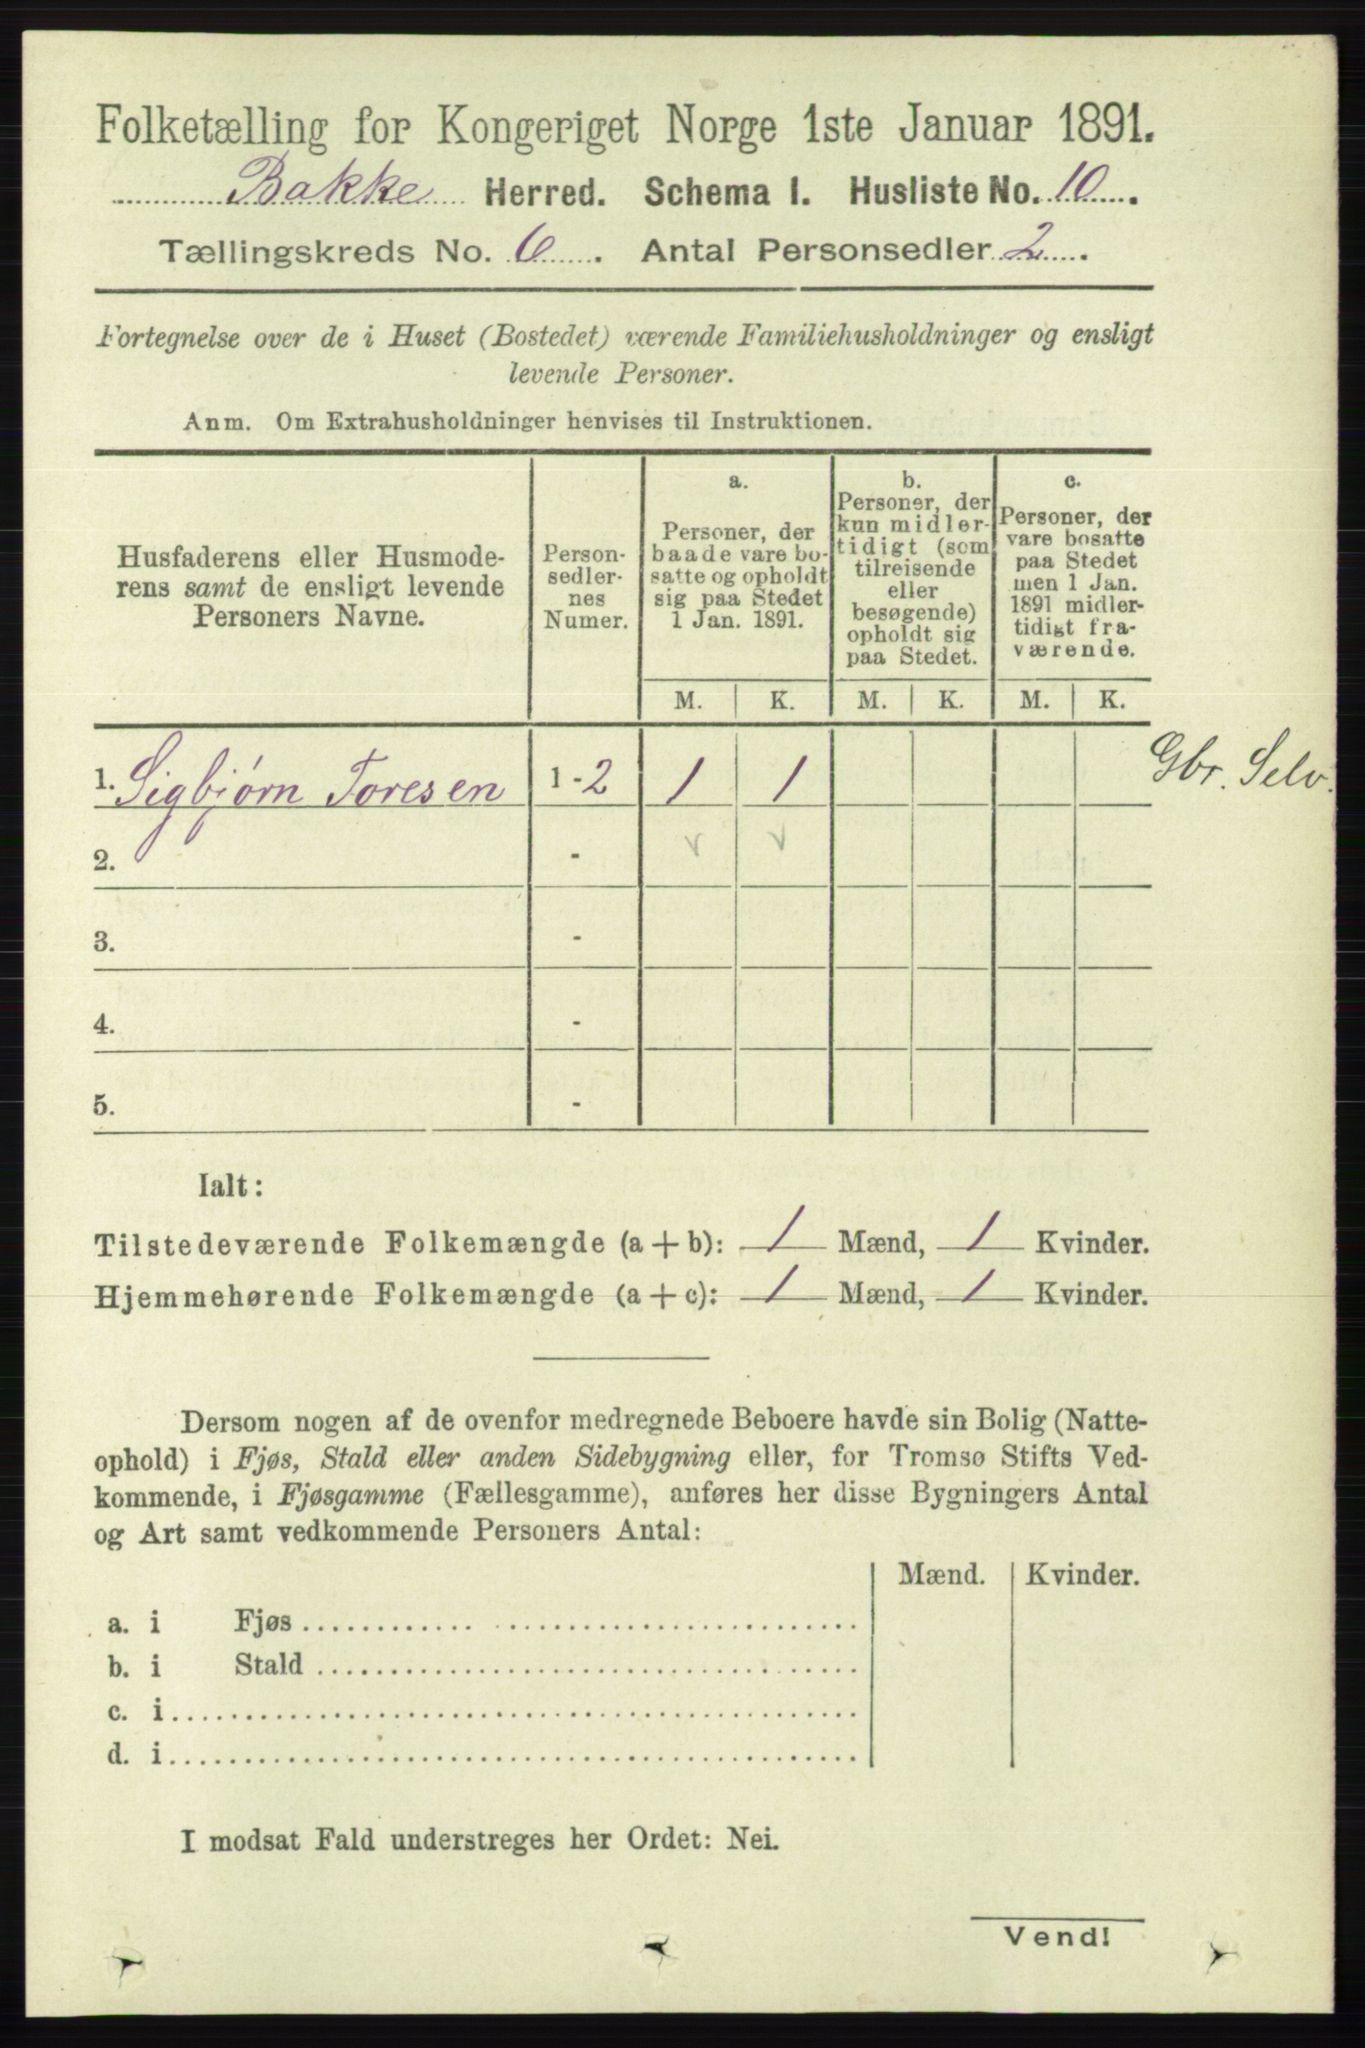 Folketælling for Kongeriget Norge 1ste Januar 1891.
Bakke Herred. Schema I. Husliste No. 10.
Tællingskreds No. 6. Antal Personsedler 2.
Fortegnelse over de i Huset (Bostedet) værende Familiehusholdninger og ensligt
levende Personer.
Anm. Om Extrahusholdninger henvises til Instruktionen.
Husfaderens eller Husmode-
rens samt de ensligt levende
Personers Navne.
Person-
sedler-
nes
Numer.
a.
Personer, der
baade vare bo-
satte og opholdt
sig paa Stedet
1 Jan. 1891.
b.
Personer, der
kun midler-
tidigt (som
tilreisende
eller
besøgende)
opholdt sig
paa Stedet.
c.
Personer, der
vare bosatte
paa Stedet
men 1 Jan.
1891 midler-
tidigt fra-
værende.
M. K. M. K. M. K.
1. Sigbjørn Toresen 1-2 1 1 Gbr. Selv.
2. - v v
3. -
4. -
5. -
Ialt:
Tilstedeværende Folkemængde (a + b): 1 Mænd, 1 Kvinder.
Hjemmehørende Folkemængde (a + c): 1 Mænd, 1 Kvinder.
Dersom nogen af de ovenfor medregnede Beboere havde sin Bolig (Natte-
ophold) i Fjøs, Stald eller anden Sidebygning eller, for Tromsø Stifts Ved-
kommende, i Fjøsgamme (Fællesgamme), anføres her disse Bygningers Antal
og Art samt vedkommende Personers Antal:
Mænd. Kvinder.
a. i Fjøs
b. i Stald
c. i
d. i
I modsat Fald understreges her Ordet: Nei.
Vend!